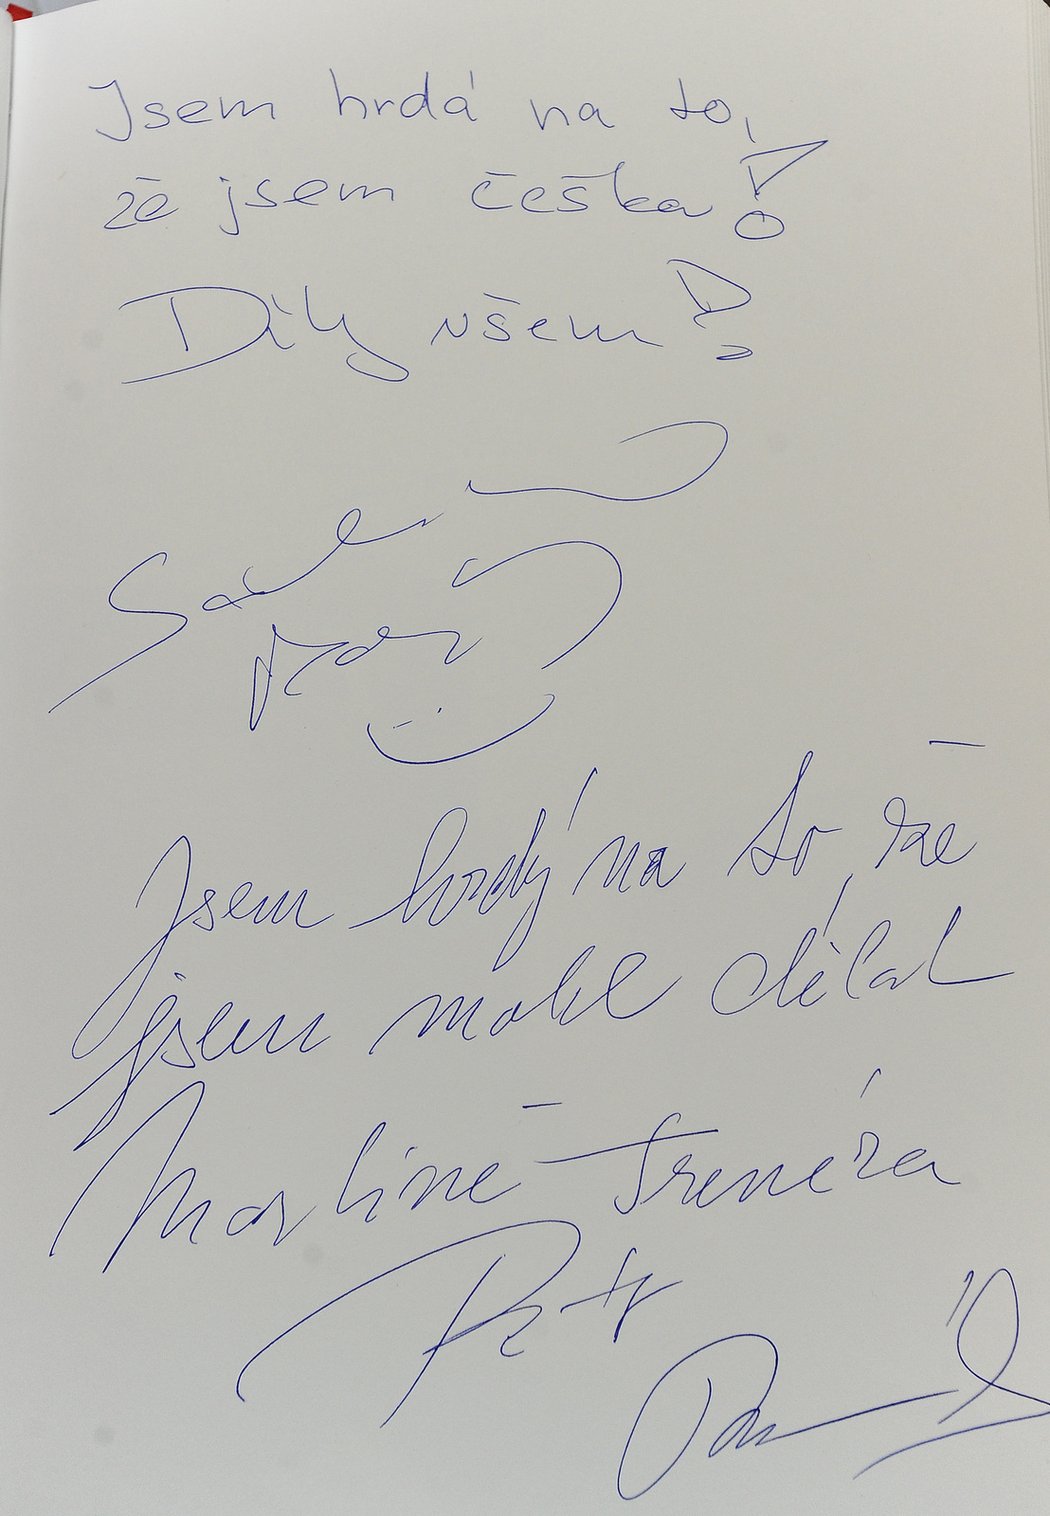 Jsem hrdá na to,
že jsem češka!
Díky všem!
Jsem hrdý na to, že
jsem mohl dělat
Martině trenéra
Petr